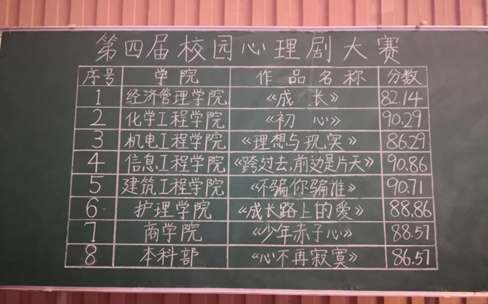 第四届校园心理剧大赛
序号 学院 作品名称 分数
1 经济管理学院 《成长》 82.14
2 化学工程学院 《初心》 90.29
3 机电工程学院 《理想与现实》 86.29
4 信息工程学院 《跨过去,前边是片天》 90.86
5 建筑工程学院 《不骗你骗谁》 90.71
6 护理学院 《成长路上的爱》 88.86
7 商学院 《少年赤子心》 88.57
8 本科部 《心不再寂寞》 86.57